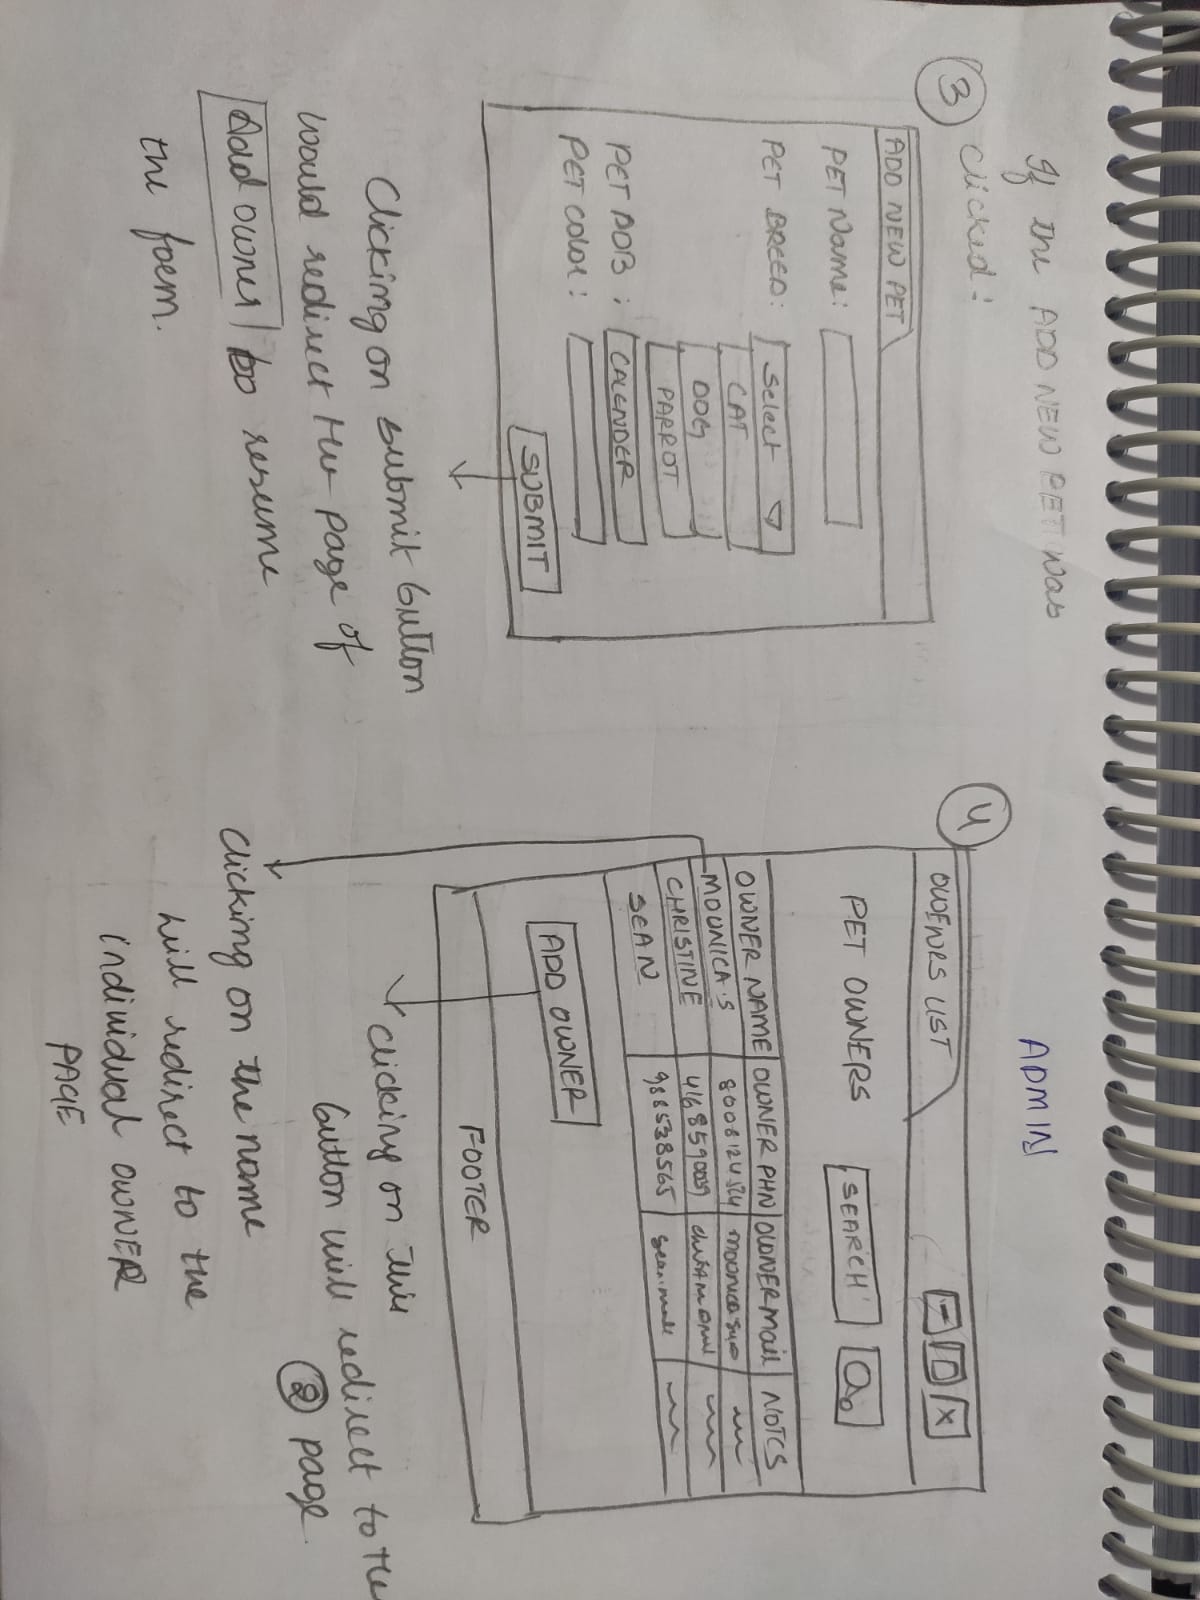 If the ADD NEW PET was
③ Clicked:
ADD NEW PET
PET Name:
PET BREED: Select
CAT
DOG
PARROT
PET DOB: CALENDER
PET COLOR:
SUBMIT
Clicking on submit button
would redirect the page of
Add owner to resume
the form.
ADMIN
④
OWENRS LIST - X
PET OWNERS SEARCH
OWNER NAME OWNER PHN OWNER MAIL NOTES
MOUNICA.S
CHRISTINE 4168590089
SEAN 988538565
ADD OWNER
FOOTER
Clicking on this
button will redirect to the
② page.
Clicking on the name
will redirect to the
individual OWNER
PAGE